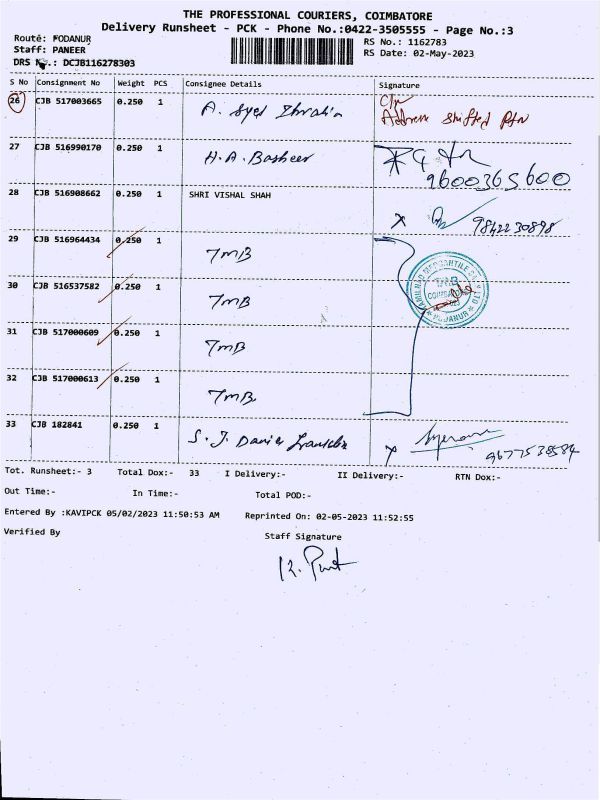 THE PROFESSIONAL COURIERS, COIMBATORE
Delivery Runsheet - PCK - Phone No.:0422-3505555 - Page No.:3
Route: PODANUR
RS No.: 1162783
Staff: PANEER
RS Date: 02-May-2023
DRS No.: DCJB116278303
S No Consignment No Weight PCS Consignee Details Signature
26 CJB 517003665 0.250 1 A. Syed Ibrahim
Address shifted Rtn
27 CJB 516990170 0.250 1 H.A. Basheer
9600365600
28 CJB 516908662 0.250 1 SHRI VISHAL SHAH
x 9842230898
29 CJB 516964434 0.250 1 TMB
TAMILNAD MERCANTILE BANK LTD
COIMBATORE
PODANUR
30 CJB 516537582 0.250 1 TMB
31 CJB 517000609 0.250 1 TMB
32 CJB 517000613 0.250 1 TMB
33 CJB 182841 0.250 1 S. J. Daniel
x 9677538584
Tot. Runsheet:- 3 Total Dox:- 33 I Delivery:- II Delivery:- RTN Dox:-
Out Time:- In Time:- Total POD:-
Entered By :KAVIPCK 05/02/2023 11:50:53 AM Reprinted On: 02-05-2023 11:52:55
Verified By Staff Signature